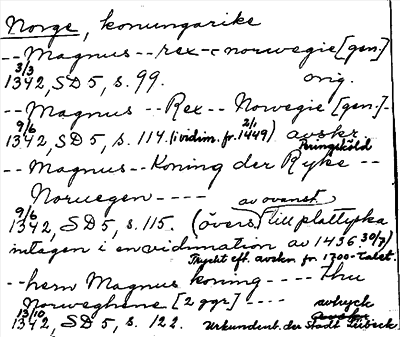 Norge, konungarike
-- Magnus -- rex -- norwegie [gen.]
3/3
1342, SD 5, s. 99. orig.
-- Magnus -- Rex -- Norwegie [gen.] -
9/6
1342, SD 5, s. 114. (i vidim. fr. 2/1 1449) avskr.
Peringskiöld
-- Magnus -- Koning der Ryke --
Norwegen ----
av ovanst.
9/6
1342, SD 5, s. 115. (övers. till plattyska
intagen i en vidimation av 1436 30/7)
Tryckt eft. avskr. fr. 1700-talet.
-- hern Magnus koning ---- thu
Norweghene [2 ggr] ---- avtryck
13/10
1342, SD 5, s. 122. Urkundenb. der Stadt Lübeck